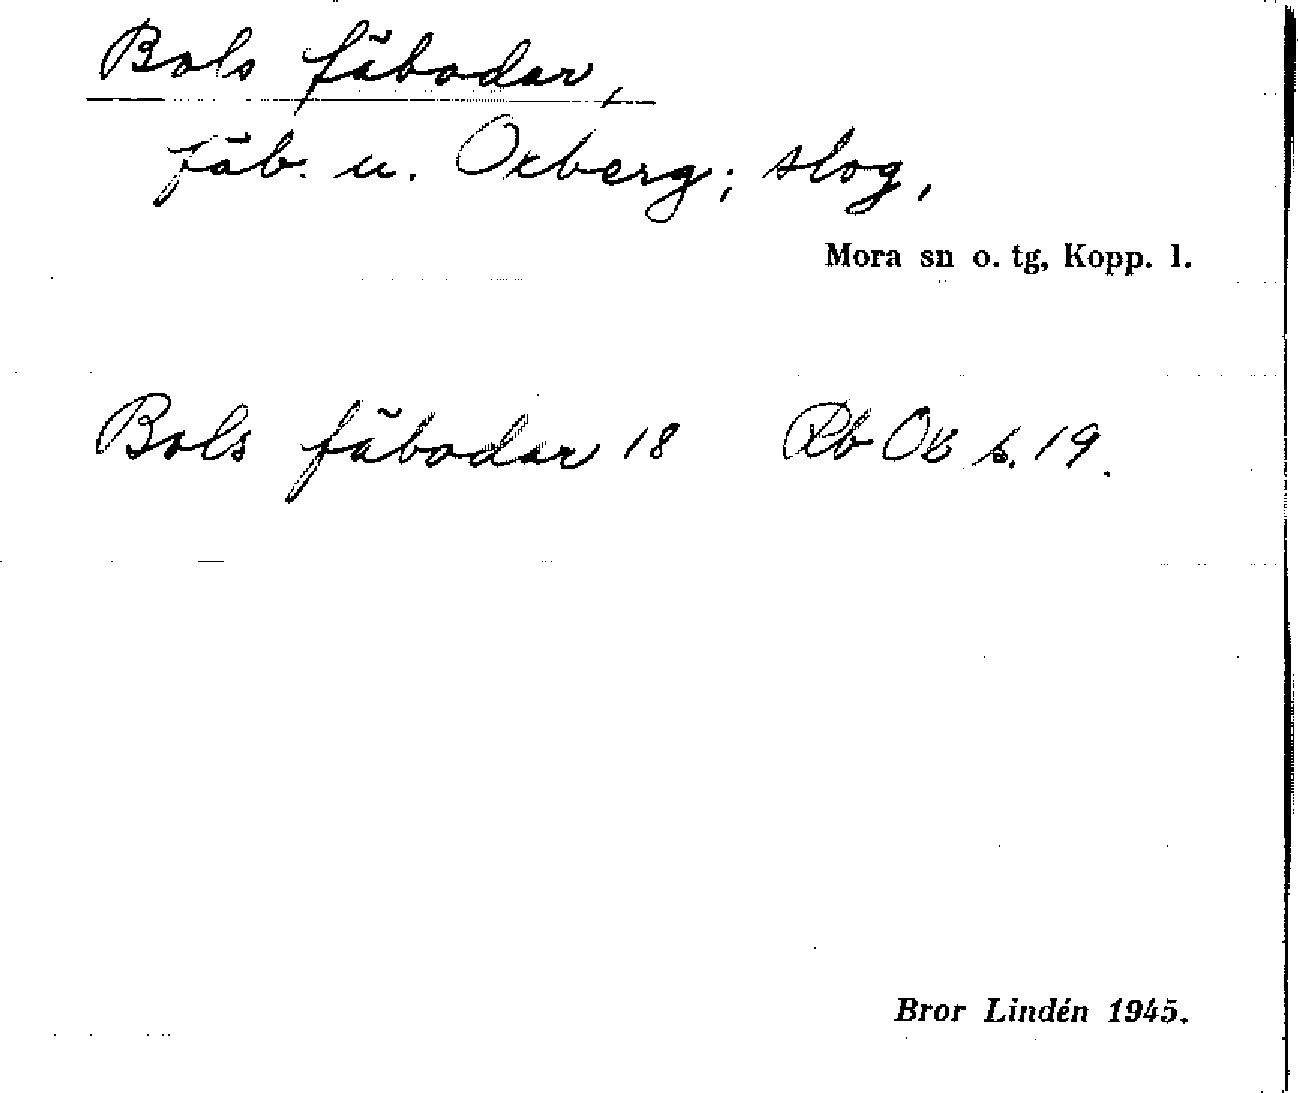 Bols fäbodar,
fäb. u. Oxberg; slog,
Mora sn o. tg, Kopp. l.
Bols fäbodar 18 Rb OB s. 19.
Bror Lindén 1945.